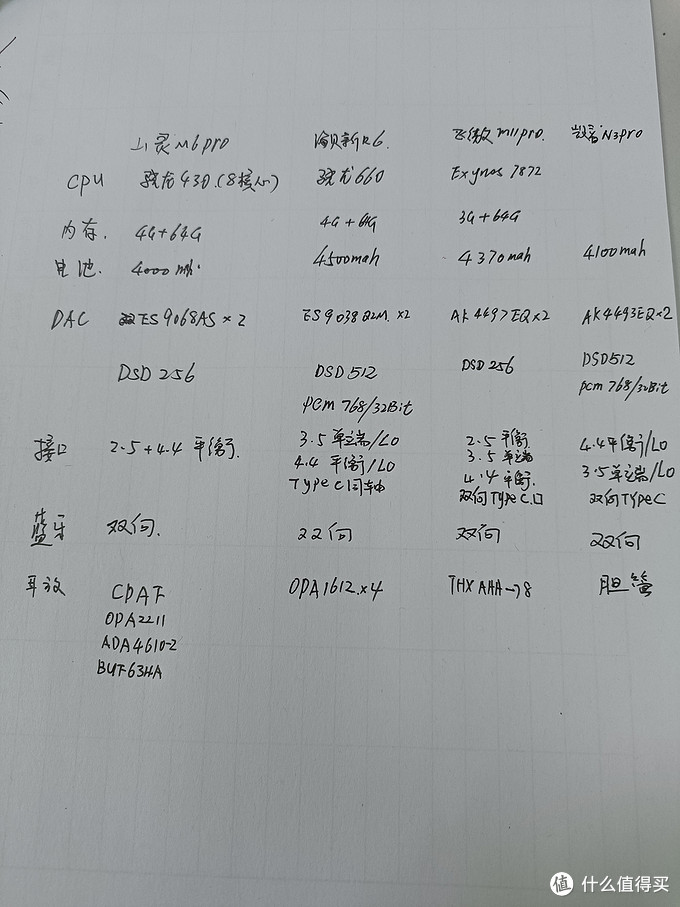 山灵M6pro 海贝新R6. 飞傲m11pro. 凯音N3pro
CPU 骁龙430.(8核心) 骁龙660 Exynos 7872
内存. 4G+64G 4G+64G 3G+64G
电池. 4000mh. 4500mah 4370mah 4100mah
DAC 双ES9068AS×2 ES9038Q2M.×2 AK4497EQ×2 AK4493EQ×2
DSD256 DSD512 DSD256 DSD512
pcm768/32Bit pcm768/32Bit
接口 2.5+4.4平衡. 3.5单端/LO 2.5平衡. 4.4平衡/LO
4.4平衡/LO 3.5单端 3.5单端/LO
TYPEC同轴 4.4平衡. 双向TYPEC
双向TYPEC.口
蓝牙 双向. 双向 双向 双向
耳放 OPA1612.×4 THX AAA→78 胆
OPA2211
ADA4610-2
BUF634A
值 什么值得买